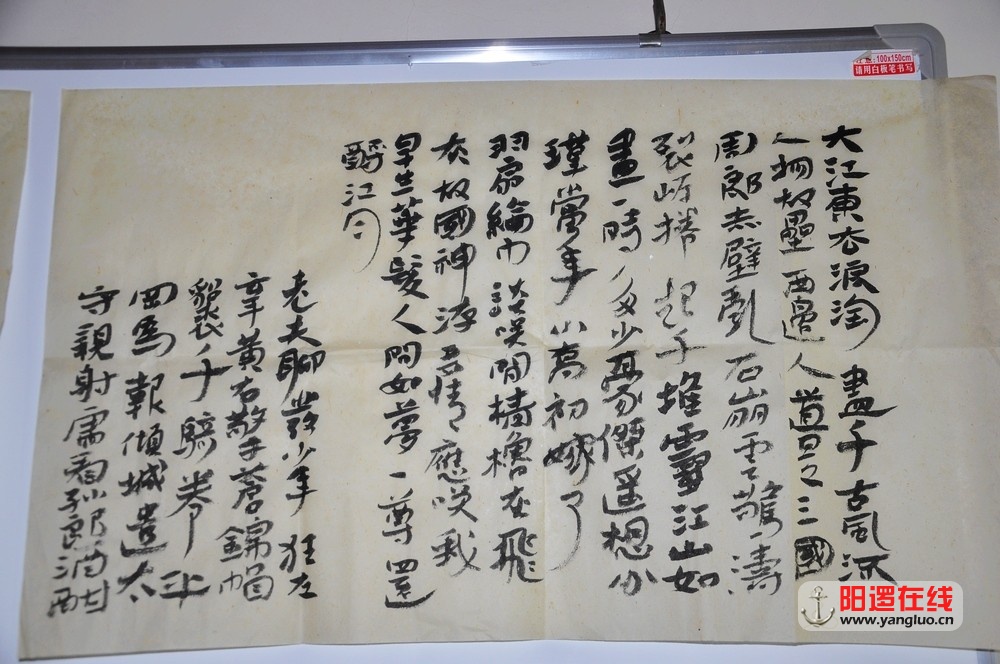 大江東去浪淘盡千古風流
人物故壘西邊人道是三國
周郎赤壁亂石崩雲驚濤
裂岸捲起千堆雪江山如
畫一時多少豪傑遥想公
瑾當年小喬初嫁了
羽扇綸巾談咲間檣櫓灰飛
故國神游多情應咲我
早生華髮人間如夢一尊還
酹江月
老夫聊發少年狂左
牽黄右擎蒼錦帽
貂裘千騎卷平
岡為報傾城太
守親射虎看孫郎酒酣
100x150cm
请用白板笔书写
阳逻在线
www.yangluo.cn